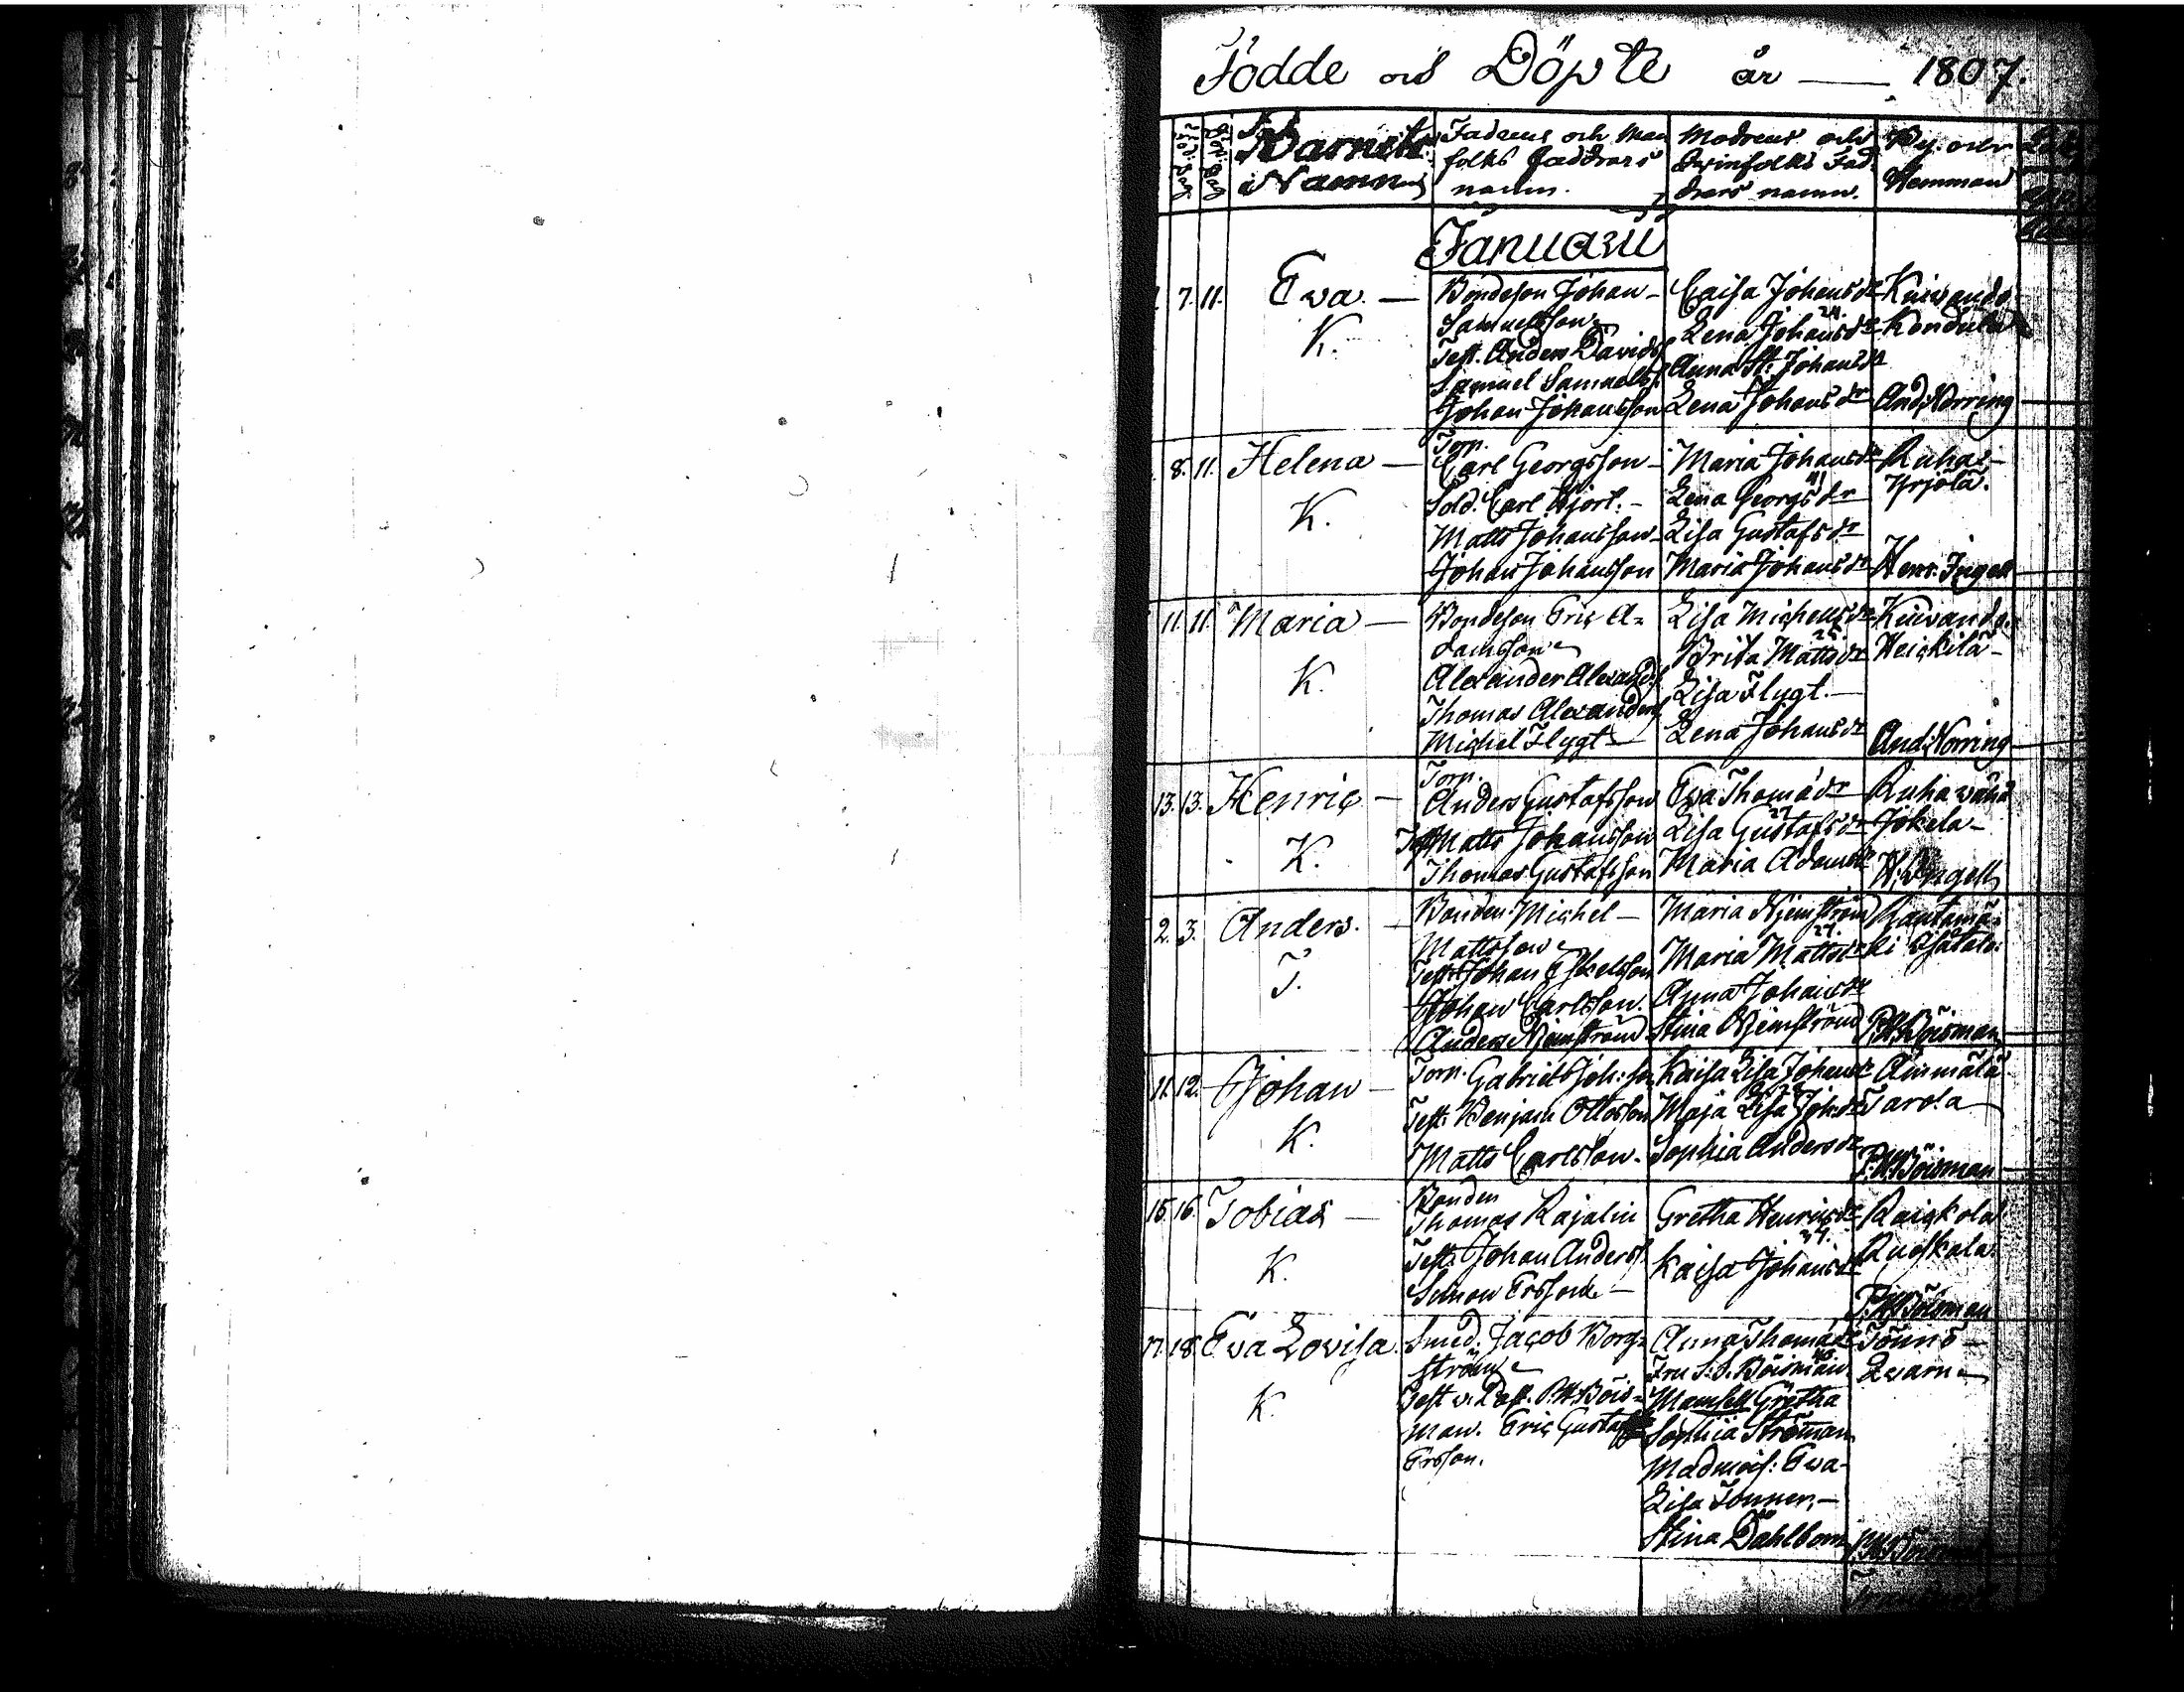 Födde och Döpte år — 1807.
Född: dag
Döpt: dag
Barnets Namn
Fadrens och Man folks Faddrars namn.
Modrens och Qvinfolks Fad drars namn.
By och Hemman
Januarii
7. 11. Eva. — K.
Bondeson Johan –
Samuelsson
Test. Anders Davidss.
Samuel Samuelss.
Johan Johansson
Caisa Johansdr
24.
Lena Johansdr
Anna St: Johansdr
Lena Johansdr
Kuivando
Kondula
And: Norring
8. 11. Helena — K.
Torp.
Carl Georgsson –
Sold. Carl Hjort. –
Matts Johansson
Johan Johansson
Maria Johansdr
41
Lena Georgsdr
Lisa Gustafsdr
Maria Johansdr
Ruha –
Yrjölä.
Henr: Ingell
11. 11. Maria — K.
Bondeson Eric A-
damsson
Alexander Alexandss.
Thomas Alexanderss.
Michel Flygt
Lisa Michelsdr
25.
Brita Mattsdr
Lisa Flygt. –
Lena Johansdr
Kuivando
Heickilä –
And: Norring
13. 13. Henric — K.
Torp.
Anders Gustafsson
Test Matts Johansson
Thomas Gustafsson
Eva Thomædr
27
Lisa Gustafsdr
Maria Adamsdr
Ruha
Jokela –
H: Ingell
2. 3. Anders. — T.
Bonden Michel –
Mattsson
Test: Johan Eskelsson
Johan Carlsson.
Anders
Maria
27.
Maria Mattsdr
Anna Johansdr
Stina
P.H. Böisman
11. 12. Johan — K.
Torp. Gabriel Joh: son
Test. Benjam Ottosson
Matts Carlsson.
Kaisa Lisa Johansdr
Maja Lisa Joh:dr
Sophia Andersdr
Äimmälä
Tarola
P.H. Böisman
15. 16. Tobias — K.
Bonden
Thomas Rajalin
Test. Johan Anderss.
Simon Ersson –
Gretha Henricsdr
34.
Kaisa Johansdr
Raickola
Ruoskala.
P.H. Böisman
17. 18. Eva Lovisa K.
Smed. Jacob Borg-
ström
Test v. Past. P.H. Böis-
man. Eric Gustaf
Ersson.
Anna Thomædr
Fru S: S. Böisman
Mamsell Gretha
Sophia Ströman
Madmois: Eva
Lisa Tonner, –
Stina Dahlbom
Tönnö –
Qvarn
P.H. Böisman